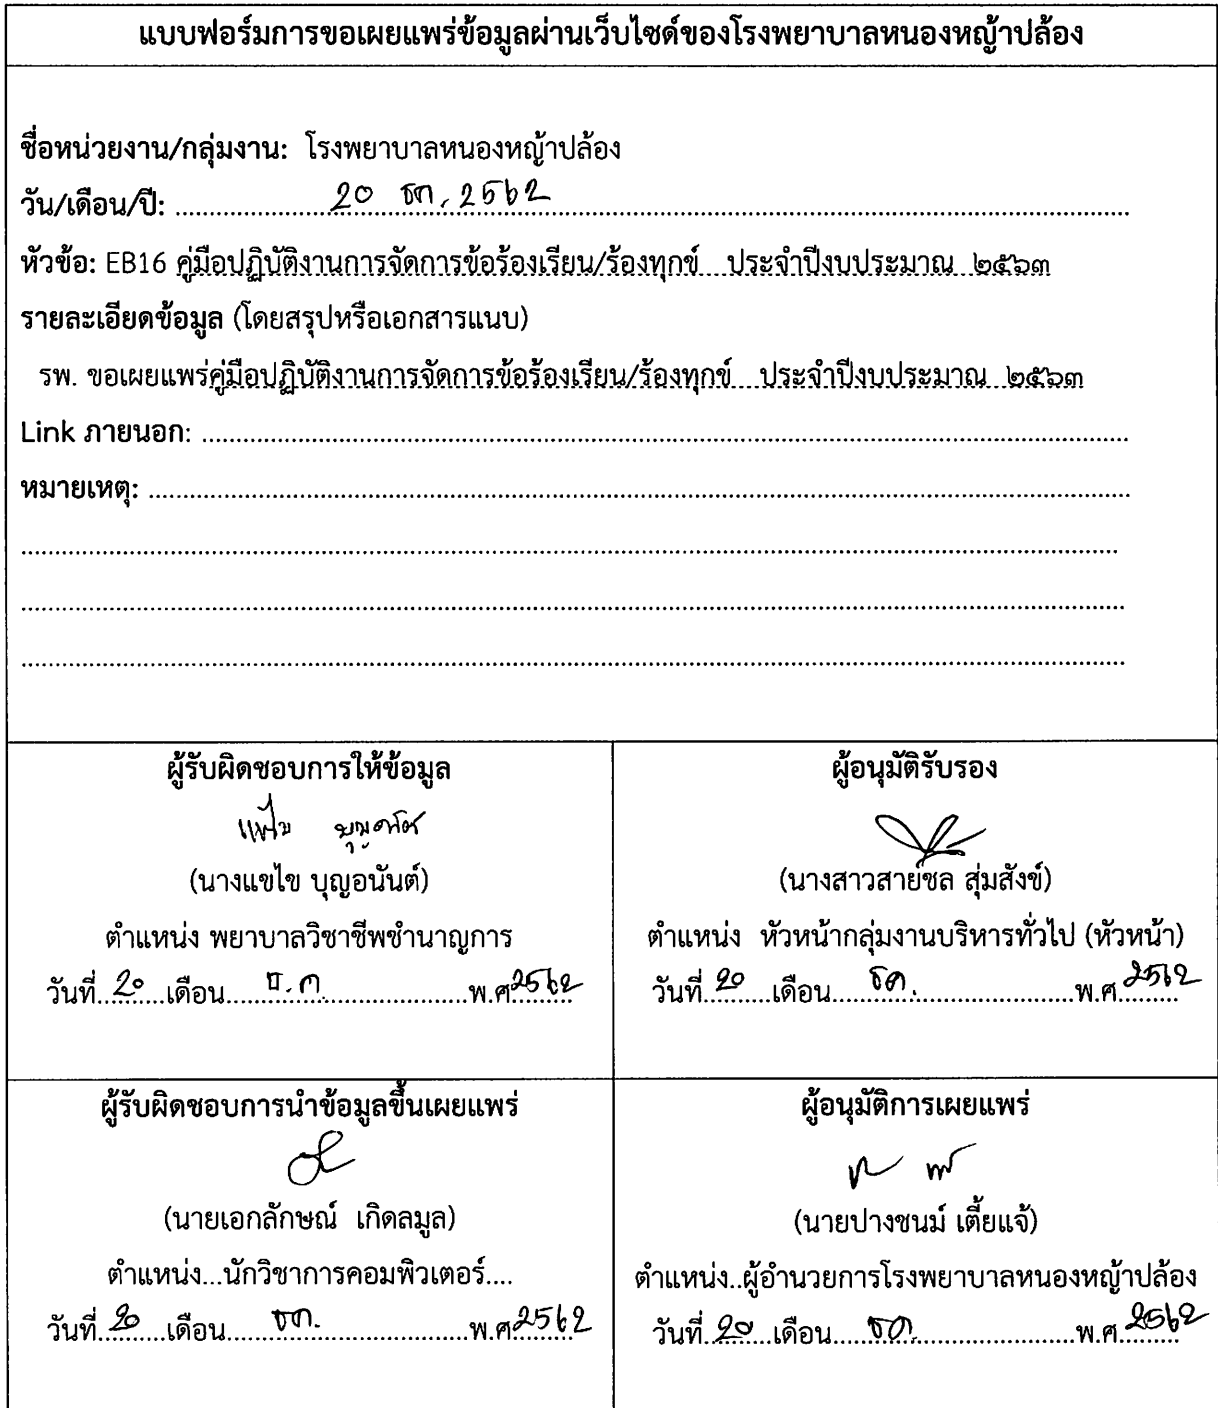 แบบฟอร์มการขอเผยแพร่ข้อมูลผ่านเว็บไซต์ของโรงพยาบาลหนองหญ้าปล้อง
ชื่อหน่วยงาน/กลุ่มงาน: โรงพยาบาลหนองหญ้าปล้อง
วัน/เดือน/ปี: 20 ธค. 2562
หัวข้อ: EB16 คู่มือปฏิบัติงานการจัดการข้อร้องเรียน/ร้องทุกข์ ประจำปีงบประมาณ ๒๕๖๓
รายละเอียดข้อมูล (โดยสรุปหรือเอกสารแนบ)
รพ. ขอเผยแพร่คู่มือปฏิบัติงานการจัดการข้อร้องเรียน/ร้องทุกข์ ประจำปีงบประมาณ ๒๕๖๓
Link ภายนอก:
หมายเหตุ:
ผู้รับผิดชอบการให้ข้อมูล
แขไข บุญอนันต์
(นางแขไข บุญอนันต์)
ตำแหน่ง พยาบาลวิชาชีพชำนาญการ
วันที่ 20 เดือน ธ.ค. พ.ศ 2562
ผู้อนุมัติรับรอง
(นางสาวสายชล สุ่มสังข์)
ตำแหน่ง หัวหน้ากลุ่มงานบริหารทั่วไป (หัวหน้า)
วันที่ 20 เดือน ธค. พ.ศ 2562
ผู้รับผิดชอบการนำข้อมูลขึ้นเผยแพร่
(นายเอกลักษณ์ เกิดลมูล)
ตำแหน่ง...นักวิชาการคอมพิวเตอร์....
วันที่ 20 เดือน ธค. พ.ศ 2562
ผู้อนุมัติการเผยแพร่
(นายปางชนม์ เตี้ยแจ้)
ตำแหน่ง..ผู้อำนวยการโรงพยาบาลหนองหญ้าปล้อง
วันที่ 20 เดือน ธค. พ.ศ 2562